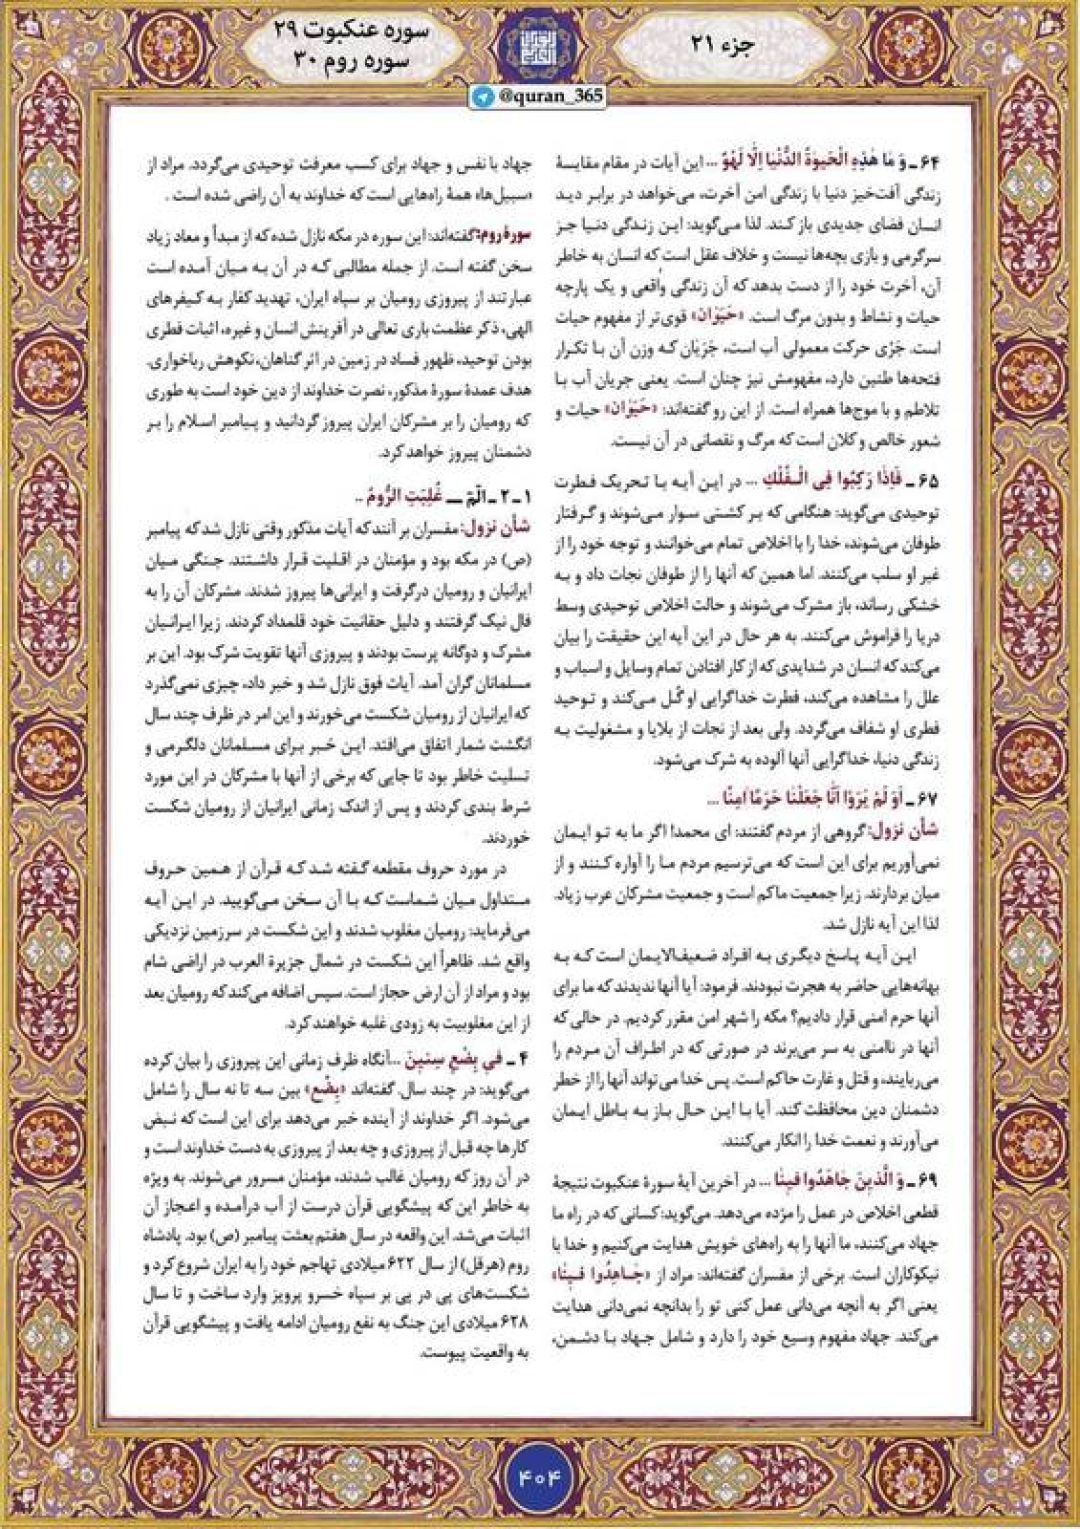 جزء ۲۱
سوره عنکبوت ۲۹
سوره روم ۳۰
@quran_365
۶۴ـ وَ مَا هٰذِهِ الْحَیوٰةُ الدُّنْیَا اِلّٰا لَهْوٌ ... این آیات در مقام مقایسهٔ
زندگی آفت‌خیز دنیا با زندگی امن آخرت، می‌خواهد در برابر دید
انسان فضای جدیدی باز کند. لذا می‌گوید: این زندگی دنیا جز
سرگرمی و بازی بچه‌ها نیست و خلاف عقل است که انسان به خاطر
آن، آخرت خود را از دست بدهد که آن زندگی واقعی و یک پارچه
حیات و نشاط و بدون مرگ است. «حَیَوٰان» قوی‌تر از مفهوم حیات
است. جَرْی حرکت معمولی آب است، جَرَیَان که وزن آن با تکرار
فتحه‌ها طنین دارد، مفهومش نیز چنان است. یعنی جریان آب با
تلاطم و با موج‌ها همراه است. از این رو گفته‌اند: «حَیَوٰان» حیات و
شعور خالص و کلان است که مرگ و نقصانی در آن نیست.
۶۵ ـ فَاِذٰا رَکِبُوا فِی الْـفُلْكِ ... در این آیه با تحریک فطرت
توحیدی می‌گوید: هنگامی که بر کشتی سوار می‌شوند و گرفتار
طوفان می‌شوند، خدا را با اخلاص تمام می‌خوانند و توجه خود را از
غیر او سلب می‌کنند. اما همین که آنها را از طوفان نجات داد و به
خشکی رساند، باز مشرک می‌شوند و حالت اخلاص توحیدی وسط
دریا را فراموش می‌کنند. به هر حال در این آیه این حقیقت را بیان
می‌کند که انسان در شدایدی که از کار افتادن تمام وسایل و اسباب و
علل را مشاهده می‌کند، فطرت خداگرایی او گُل می‌کند و توحید
فطری او شفاف می‌گردد. ولی بعد از نجات از بلایا و مشغولیت به
زندگی دنیا، خداگرایی آنها آلوده به شرک می‌شود.
۶۷ ـ اَوَ لَمْ یَرَوْا اَنّٰا جَعَلْنٰا حَرَمًا اٰمِنًا ...
شأن نزول: گروهی از مردم گفتند: ای محمد! اگر ما به تو ایمان
نمی‌آوریم برای این است که می‌ترسیم مردم ما را آواره کنند و از
میان بردارند. زیرا جمعیت ما کم است و جمعیت مشرکان عرب زیاد.
لذا این آیه نازل شد.
این آیه پاسخ دیگری به افراد ضعیف‌الایمان است که به
بهانه‌هایی حاضر به هجرت نبودند. فرمود: آیا آنها ندیدند که ما برای
آنها حرم امنی قرار دادیم؟ مکه را شهر امن مقرر کردیم. در حالی که
آنها در ناامنی به سر می‌برند در صورتی که در اطراف آن مردم را
می‌ربایند، و قتل و غارت حاکم است. پس خدا می‌تواند آنها را از خطر
دشمنان دین محافظت کند. آیا با این حال باز به باطل ایمان
می‌آورند و نعمت خدا را انکار می‌کنند.
۶۹ ـ وَ الَّذِینَ جَاهَدُوا فِینٰا ... در آخرین آیهٔ سورهٔ عنکبوت نتیجهٔ
قطعی اخلاص در عمل را مژده می‌دهد. می‌گوید: کسانی که در راه ما
جهاد می‌کنند، ما آنها را به راه‌های خویش هدایت می‌کنیم و خدا با
نیکوکاران است. برخی از مفسران گفته‌اند: مراد از «جَاهِدُوا فینٰا»
یعنی اگر به آنچه می‌دانی عمل کنی تو را بدانچه نمی‌دانی هدایت
می‌کند. جهاد مفهوم وسیع خود را دارد و شامل جهاد با دشمن،
جهاد با نفس و جهاد برای کسب معرفت توحیدی می‌گردد. مراد از
«سبیل‌ها» همهٔ راه‌هایی است که خداوند به آن راضی شده است .
سورهٔ روم: گفته‌اند: این سوره در مکه نازل شده که از مبدأ و معاد زیاد
سخن گفته است. از جمله مطالبی که در آن به میان آمده است
عبارتند از پیروزی رومیان بر سپاه ایران، تهدید کفار به کیفرهای
الهی، ذکر عظمت باری تعالی در آفرینش انسان و غیره، اثبات فطری
بودن توحید، ظهور فساد در زمین در اثر گناهان، نکوهش رباخواری.
هدف عمدهٔ سورهٔ مذکور، نصرت خداوند از دین خود است به طوری
که رومیان را بر مشرکان ایران پیروز گردانید و پیامبر اسلام را بر
دشمنان پیروز خواهد کرد.
۱ ـ ۲ ـ الٓمٓ ـــ غُلِبَتِ الرُّومُ ..
شأن نزول: مفسران بر آنند که آیات مذکور وقتی نازل شد که پیامبر
(ص) در مکه بود و مؤمنان در اقلیت قرار داشتند. جنگی میان
ایرانیان و رومیان درگرفت و ایرانی‌ها پیروز شدند. مشرکان آن را به
فال نیک گرفتند و دلیل حقانیت خود قلمداد کردند. زیرا ایرانیان
مشرک و دوگانه پرست بودند و پیروزی آنها تقویت شرک بود. این بر
مسلمانان گران آمد. آیات فوق نازل شد و خبر داد، چیزی نمی‌گذرد
که ایرانیان از رومیان شکست می‌خورند و این امر در ظرف چند سال
انگشت شمار اتفاق می‌افتد. این خبر برای مسلمانان دلگرمی و
تسلیت خاطر بود تا جایی که برخی از آنها با مشرکان در این مورد
شرط بندی کردند و پس از اندک زمانی ایرانیان از رومیان شکست
خوردند.
در مورد حروف مقطعه گفته شد که قرآن از همین حروف
متداول میان شماست که با آن سخن می‌گویید. در این آیه
می‌فرماید: رومیان مغلوب شدند و این شکست در سرزمین نزدیکی
واقع شد. ظاهراً این شکست در شمال جزیرة العرب در اراضی شام
بود و مراد از آن ارض حجاز است. سپس اضافه می‌کند که رومیان بعد
از این مغلوبیت به زودی غلبه خواهند کرد.
۴ ـ فِی بِضْعِ سِنِینَ ...آنگاه ظرف زمانی این پیروزی را بیان کرده
می‌گوید: در چند سال. گفته‌اند «بِضْع» بین سه تا نه سال را شامل
می‌شود. اگر خداوند از آینده خبر می‌دهد برای این است که نبض
کارها چه قبل از پیروزی و چه بعد از پیروزی به دست خداوند است و
در آن روز که رومیان غالب شدند، مؤمنان مسرور می‌شوند. به ویژه
به خاطر این که پیشگویی قرآن درست از آب درآمده و اعجاز آن
اثبات می‌شد. این واقعه در سال هفتم بعثت پیامبر (ص) بود. پادشاه
روم (هرقل) از سال ۶۲۲ میلادی تهاجم خود را به ایران شروع کرد و
شکست‌های پی در پی بر سپاه خسرو پرویز وارد ساخت و تا سال
۶۲۸ میلادی این جنگ به نفع رومیان ادامه یافت و پیشگویی قرآن
به واقعیت پیوست.
۴۰۴